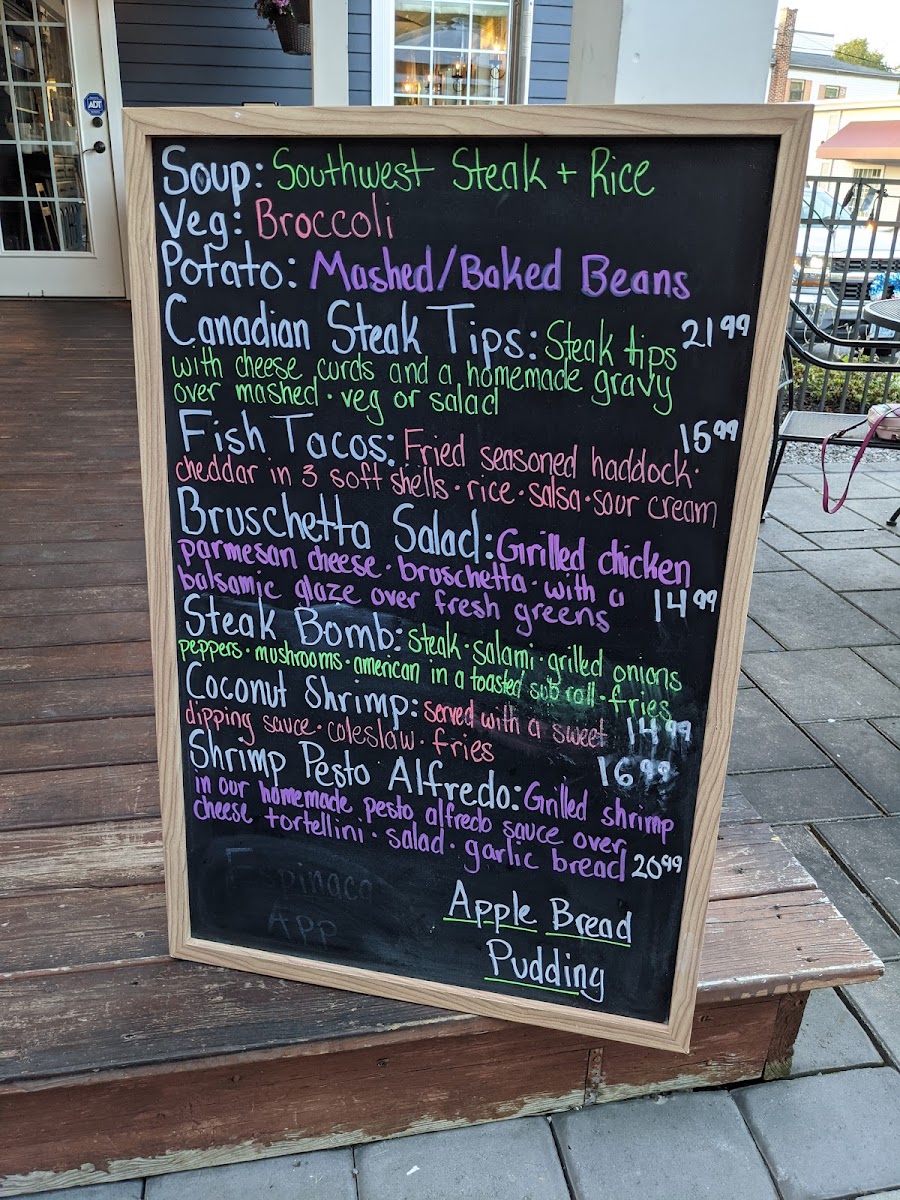 ADT
Soup: Southwest Steak + Rice
Veg: Broccoli
Potato: Mashed/Baked Beans
Canadian Steak Tips: Steak tips 21.99
with cheese curds and a homemade gravy
over mashed · veg or salad
Fish Tacos: Fried seasoned haddock · 15.99
cheddar in 3 soft shells · rice · salsa · sour cream
Bruschetta Salad: Grilled chicken
parmesan cheese · bruschetta · with a
balsamic glaze over fresh greens 14.99
Steak Bomb: steak · salami · grilled onions
peppers · mushrooms · american in a toasted sub roll · fries
14.99
Coconut Shrimp: served with a sweet
dipping sauce · coleslaw · fries 16.99
Shrimp Pesto Alfredo: Grilled shrimp
in our homemade pesto alfredo sauce over
cheese tortellini · salad · garlic bread 20.99
Espinaca
App
Apple Bread
Pudding